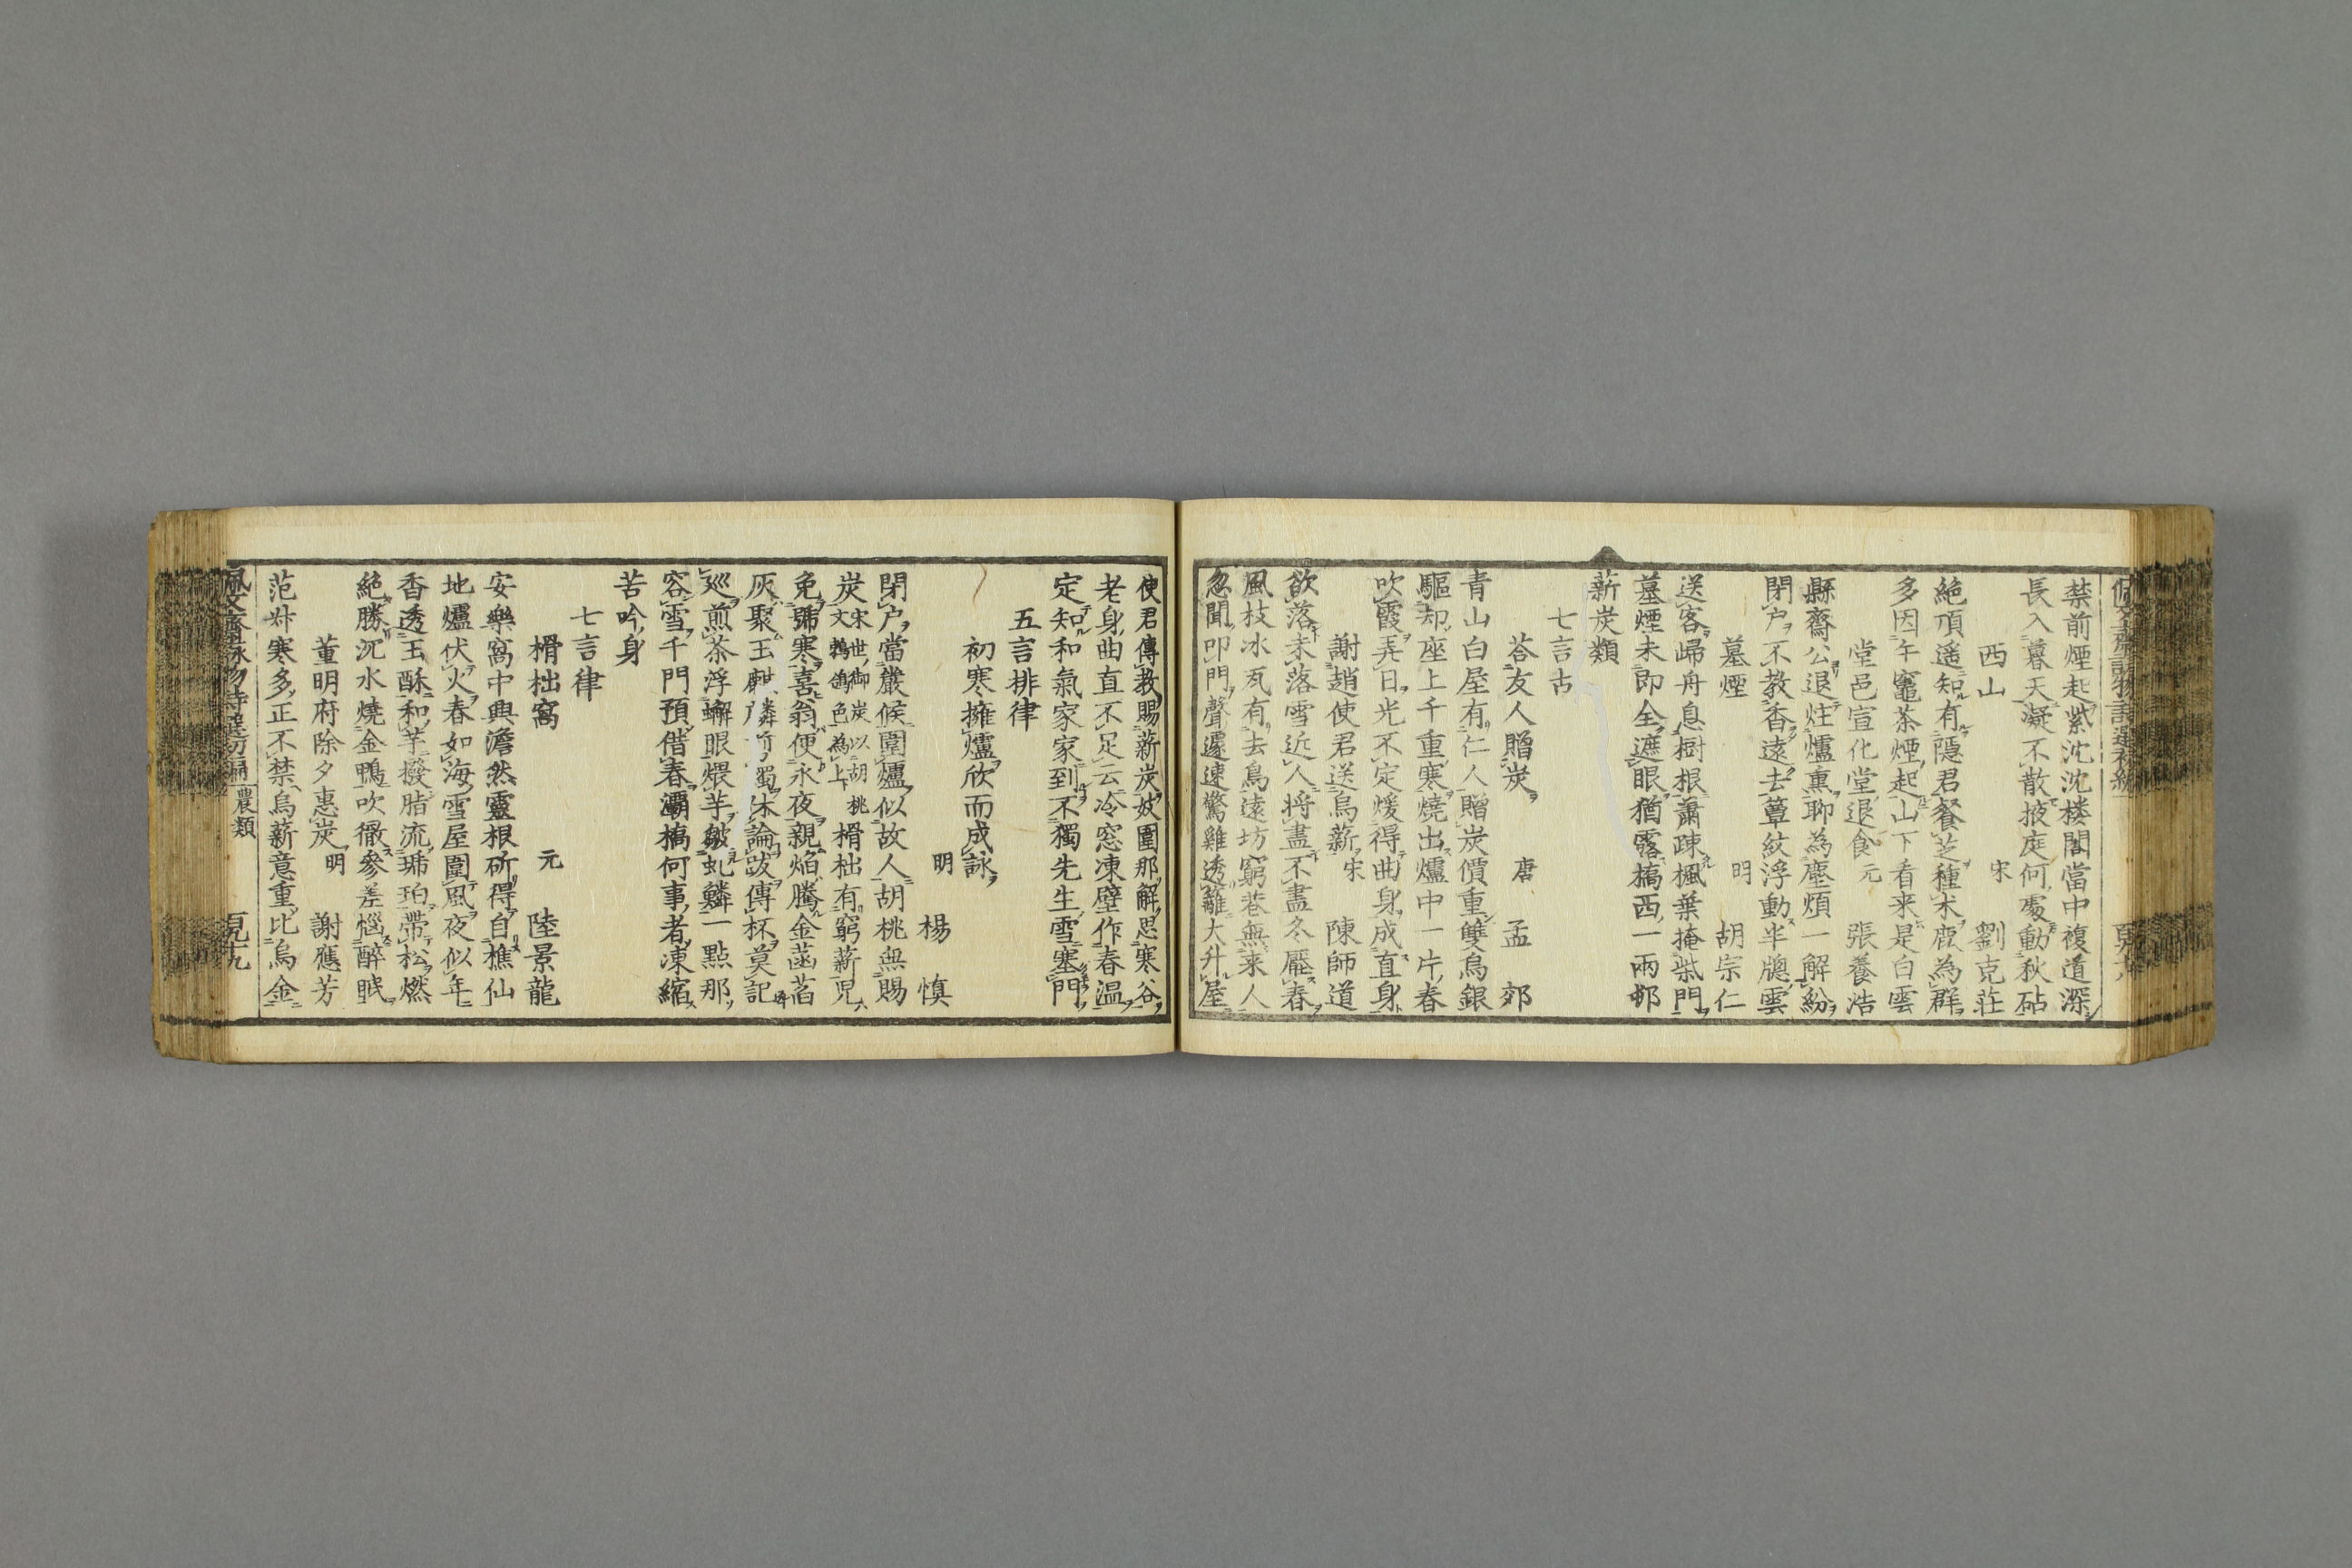 禁前煙起紫沈沈楼閣當中複道深
長入暮天凝不散掖庭何處動秋砧
西山 宋 劉克莊
絶頂遥知有隱君餐芝種朮鹿為群
多因午竈茶煙起山下看来是白雲
堂邑宣化堂退食 元 張養浩
縣齋公退炷爐熏聊為塵煩一解紛
閉户不教香遠去簟紋浮動半牕雲
墓煙 明 胡宗仁
送客歸舟息樹根蕭疎楓葉掩柴門
墓煙未即全遮眼猶露橋西一兩邨
薪炭類
七言古
荅友人贈炭 唐 孟郊
青山白屋有仁人贈炭價重雙烏銀
驅却座上千重寒燒出爐中一片春
吹霞弄日光不定煖得曲身成直身
謝趙使君送烏薪 宋 陳師道
欲落未落雪近人将盡不盡冬壓春
風枝冰瓦有去鳥遠坊窮巷無来人
忽聞叩門聲遽速驚雞透籬犬升屋
使君傳教賜薪炭妓圍那解思寒谷
老身曲直不足云冷窓凍壁作春温
定知和氣家家到不獨先生雪塞門
五言排律
初寒擁爐欣而成詠
明 楊慎
閉户當嚴候圍爐似故人胡桃無賜
炭 宋世御炭以胡桃文鵓鴿色為上 榾柮有窮薪児
免號寒喜翁便永夜親焰騰金菡萏
灰聚玉麒麟 蜀 論跋傳杯莫記
巡煎茶浮蠏眼煨芋皴虬鱗一點那
容雪千門預借春灞橋何事者凍縮
苦吟身
七言律
榾柮窩 元 陸景龍
安樂窩中興澹然靈根斫得自樵仙
地爐伏火春如海雪屋圍風夜似年
香透玉酥和芋撥脂流琥珀帶松燃
絶勝沉水燒金鴨吹徹參差惱醉眠
董明府除夕惠炭 明 謝應芳
范叔寒多正不禁烏薪意重比烏金
農類